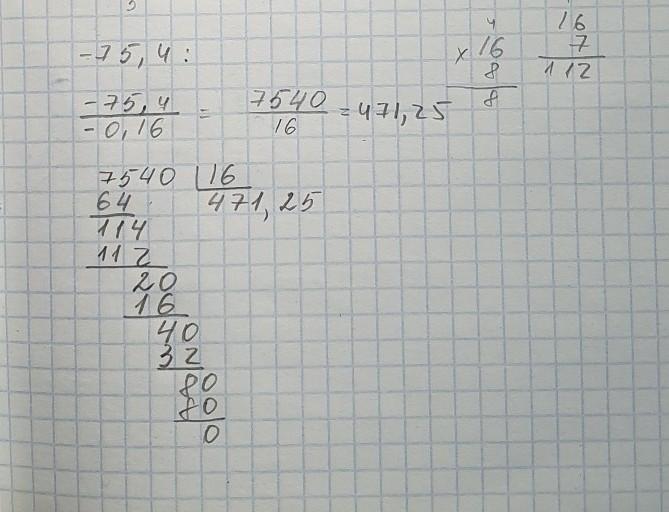 -75,4 :
-75,4 / -0,16 = 7540 / 16 = 471,25
7540 | 16
64 471,25
114
112
20
16
40
32
80
80
0
4
× 16
8
8
16
7
112